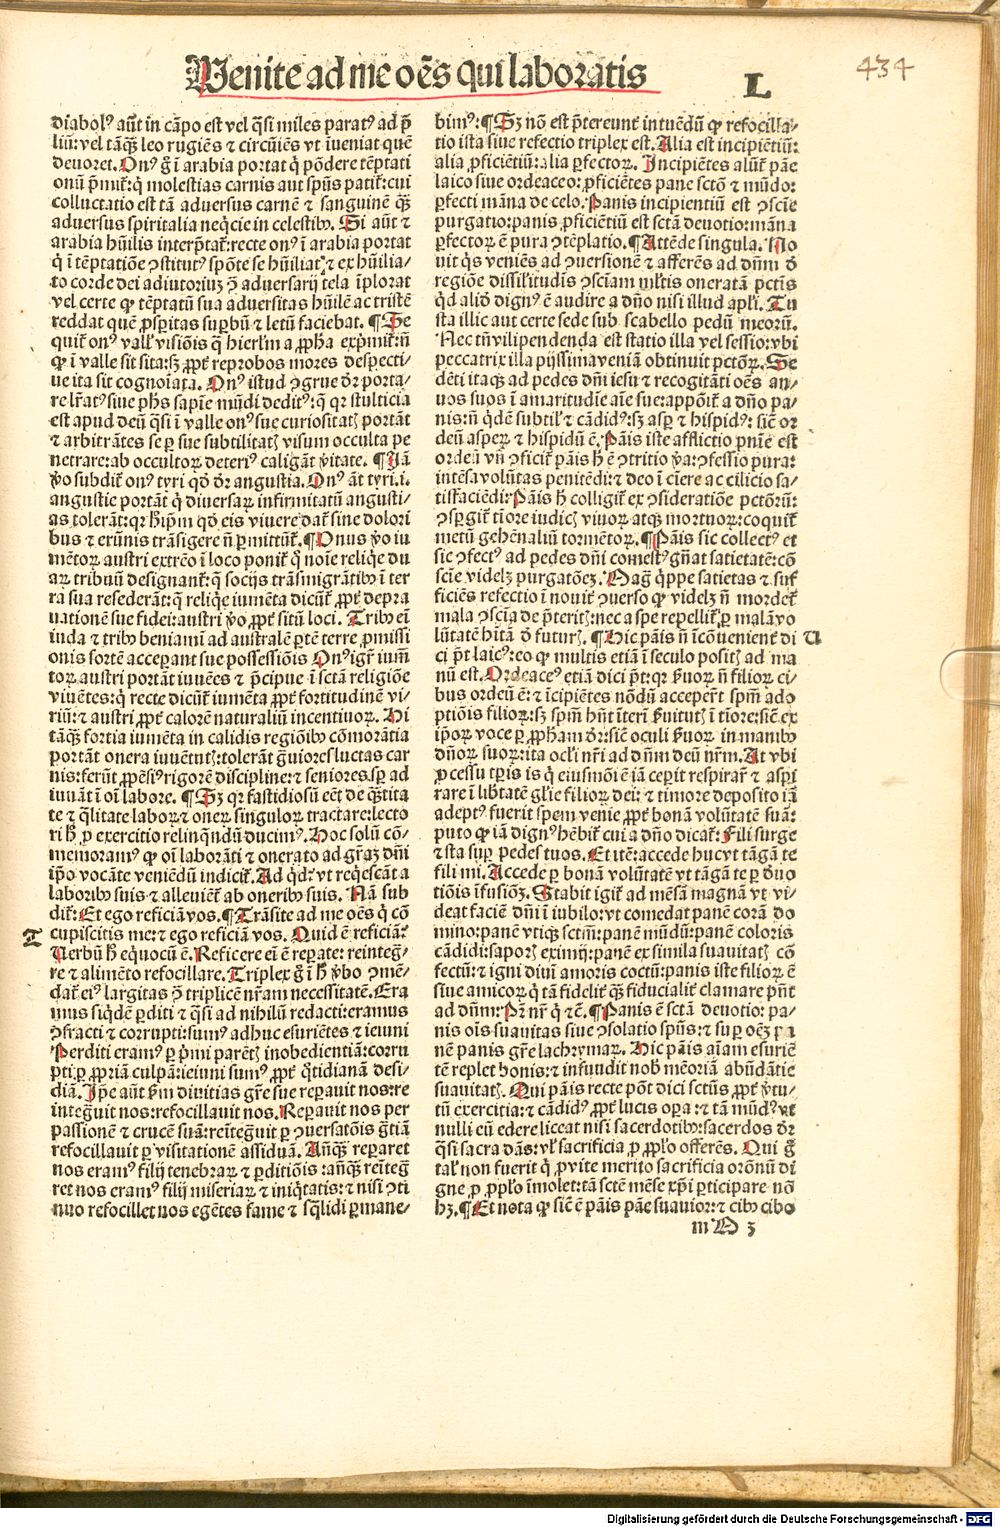 Venite ad me oēs qui laboratis
L
434
diabolꝰ aūt in cāpo est vel q̄si miles paratꝰ ad p̄
liū: vel tāq̄ȝ leo rugiēs ⁊ circūiēs vt iueniat quē
deuoret. Onꝰ ḡ ī arabia portat q̇ pōdere tēptati
onū p̄mit᷑: q̇ molestias carnis aut spūs patit᷑: cui
colluctatio est tā aduersus carnē ⁊ sanguinē q̄ȝ
aduersus spiritalia neq̇cie in celestibꝰ. Si aūt ⁊
arabia hūilis interp̄tat᷑: recte onꝰ ī arabia portat
q̇ ī tēptatiōe ꝯstitutꝰ spōte se hūiliat: ⁊ ex hūilia
to corde dei adiutoriuȝ ꝯ̄ aduersarij tela īplorat
vel certe ꝙ tēptatū sua aduersitas hūilē ac tristē
reddat quē ꝓsp̱itas sup̱bū ⁊ letū faciebat. ¶ Se
quit᷑ onꝰ vall᷑ visiōis q̄ hierl̄m a ꝓp̄ha exp̱mit᷑: nō
ꝙ ī valle sit sita: sꝫ ꝓpt̄ reprobos mores despecti
ue ita sit cognoīata. Onꝰ istud ꝯgrue dr̄ porta
re lr̄atꝰ siue ph̄s sapīe mūdi deditꝰ: q̄ qꝛ stulticia
est apud deū q̄si ī valle onꝰ sue curiositatꝭ portāt
⁊ arbitrātes se p̱ sue subtilitatꝭ visum occulta pe
netrare: ab occultoꝝ deteriꝰ caligāt v̇itate. ¶ Jā
v̇o subdit᷑ onꝰ tyri qd̄ dr̄ angustia. Onꝰ āt tyri .i.
angustie portāt q̇ diuersaꝝ infirmitatū angusti
as tolerāt: qꝛ h̄ip̄m qd̄ eis viuere dat᷑ sine dolori
bus ⁊ erūnis trāsigere n̄ p̱mittūt᷑. ¶ Onus v̇o iu
mētoꝝ austri extrēo ī loco ponit᷑ q̇ noīe reliq̄e du
aꝝ tribuū designant᷑: q̄ socijs trāsmigrātibꝰ ī ter
ra sua resederāt: q̄ reliq̄e iumēta dicūt᷑ ꝓpt̄ depra
uationē sue fidei: austri v̇o ꝓpt̄ sitū loci. Tribꝰ ei
iuda ⁊ tribꝰ beniamī ad australē p̱tē terre ꝓmissi
onis sortē acceperant sue possessiōis Onꝰ igr̄ ium̄
toꝝ austri portāt iuuēes ⁊ p̄cipue ī sctā religiōe
viuētes: q̇ recte dicūt᷑ iumēta ꝓpt̄ fortitudinē vi
riū: ⁊ austri ꝓpt̄ calorē naturaliū incentiuoꝝ. Hi
tāq̄ȝ fortia iumēta in calidis regiōibꝰ cōmorātia
portāt onera iuuētutꝭ: tolerāt ḡuiores luctas car
nis: ferūt ꝓpēsiꝰ rigorē discipline: ⁊ seniores sp̱ ad
iuuāt ī oī labore. ¶ Sꝫ qꝛ fastidiosū eēt de q̄̇tita
te ⁊ q̄litate laboꝝ ⁊ oneꝝ singuloꝝ tractare: lecto
ri h̄ ꝓ exercitio relinquēdū ducimꝰ. Hoc solū cō
memoramꝰ ꝙ oī laborāti ⁊ onerato ad gr̄aȝ dn̄i
ip̄o vocāte veniēdū indicit᷑. Ad qd̄: vt reqescāt a
laboribꝰ suis ⁊ alleuiēt᷑ ab oneribꝰ suis. Nā sub
dit᷑: Et ego reficiā vos. ¶ Trāsite ad me oēs q̇ cō
T cupiscitis me: ⁊ ego reficiā vos. Quid ē reficiā?
Verbū h̄ equocū ē. Reficere ei ē reparate: reinteḡ
re ⁊ alimēto refocillare. Triplex ḡ ī h̄ v̇bo ꝯmē
dat᷑ eiꝰ largitas ꝯ̄ triplicē nr̄am necessitatē. Era
mus siq̇dē p̱diti ⁊ q̄si ad nihilū redacti: eramus
ꝯfracti ⁊ corrupti: sumꝰ adhuc esuriētes ⁊ ieiuni
Perditi eramꝰ p̱ p̄mi parētꝭ inobedientiā: corru
pti p̱ ꝓpriā culpā: ieiuni sumꝰ ꝓpt̄ q̇tidianā desi
diā. Ip̄e aūt ẜm diuitias gr̄e sue repauit nos: re
inteḡuit nos: refocillauit nos. Reparauit nos per
passionē ⁊ crucē suā: reīteḡuit p̱ ꝯuersatōis ḡtiā
refocillauit p̱ visitationē assiduā. Anq̄ȝ repararet
nos eramꝰ filij tenebraꝝ ⁊ p̱ditiōis: anq̄ȝ reīteḡ
ret nos eramꝰ filij miseriaꝝ ⁊ iniq̇tatis: ⁊ nisi ꝯti
nuo refocillet nos egētes fame ⁊ sq̄lidi p̱mane
bimꝰ: ¶ Sꝫ nō est p̄tereunt intuēdū ꝙ refocilla
tio ista siue refectio triplex est. Alia est incipiētiū:
alia ꝓficiētiū: alia p̱fectoꝝ. Incipiētes alūt᷑ pāe
laico siue ordeaceo: ꝓficiētes pane sctō ⁊ mūdo:
p̱fecti māna de celo. Panis incipientiū est ꝯsciē
purgatio: panis ꝓficiētiū est sctā deuotio: māna
p̱fectoꝝ ē pura ꝯtēplatio. ¶ Attēde singula. No
uit q̇s veniēs ad ꝯuersionē ⁊ afferēs ad dn̄m d̄
regiōe dissilitudīs ꝯsciam mltis oneratā pctis
qd̄ aliō dignꝰ ē audire a dn̄o nisi illud apl̄i. Tu
sta illic aut certe sede sub scabello pedū meorū.
Nec tn̄ vilipendenda est statio illa vel sessio: vbi
peccatrix illa pijssima veniā obtinuit pctōꝝ. Se
dēti itaqȝ ad pedes dn̄i iesu ⁊ recogitāti oēs an
nos suos ī amaritudīe aīe sue: appōit᷑ a dn̄o pa
nis: n̄ q̇dē subtil᷑ ⁊ cādidꝰ: sꝫ asp̱ ⁊ hispidꝰ: sic̄ oꝛ
deū asp̱ ⁊ hispidū ē. Pāis iste afflictio pn̄ie est
ordeū vn̄ ꝯficit᷑ pāis h̄ ē ꝯtritio v̇a: ꝯfessio pura:
intēsa volūtas penitēdi: ⁊ deo ī ciere ac cilicio sa
tisfaciēdi: Pāis h̄ colligit᷑ ex ꝯsideratiōe pctōrū:
ꝯsp̱git᷑ tīore iudicꝭ viuoꝝ atqȝ mortuoꝝ: coquit᷑
metū gehēnaliū tormētoꝝ. ¶ Pāis sic collectꝰ et
sic ꝯfectꝰ ad pedes dn̄i comestꝰ gn̄at satietatē: cō
sciē videlꝫ purgatōeȝ. Maḡ q̇ppe satietas ⁊ suf
ficiēs refectio ī nouit᷑ ꝯuerso ꝙ videlꝫ n̄ mordet᷑
mala ꝯsciā de p̄teritꝭ: nec a spe repellit᷑ p̱ malā vo
lūtatē hitā d̄ futurꝭ. ¶ Hic pāis n̄ īcōuenient᷑ di
V
ci p̄t laicꝰ: eo ꝙ multis etiā ī seculo positꝭ ad ma
nū est. Ordeaceꝰ etiā dici p̄t: qꝛ ẜuoꝝ n̄ filioꝝ ci
bus ordeū ē: ⁊ īcipiētes nōdū acceper̄t spm̄ ado
ptiōis filioꝝ: sꝫ spm̄ hn̄t īterī ẜuitutꝭ ī tīore: sic̄ ex
ip̄oꝝ voce p̱ ꝓpham dr̄: sic̄ oculi ẜuoꝝ in manibꝰ
dn̄oꝝ suoꝝ: ita ocl̄i nr̄i ad dn̄m deū nr̄m. At vbi
ꝓcessu tp̄ris is q̇ eiusmōi ē iā cep̱it respirar᷑ ⁊ aspi
rare ī liḇtatē gl̄ie filioꝝ dei: ⁊ timore deposito iā
adeptꝰ fuerit spem venie ꝓpt̄ bonā volūtatē suā:
puto ꝙ iā dignꝰ hēbit᷑ cui a dn̄o dicat᷑: Fili surge
⁊ sta sup̱ pedes tuos. Et itē: accede huc vt tāgā te
fili mi. Accede p̱ bonā volūtatē vt tāgā te p̱ d̄uo
tiōis īfusiōȝ. Stabit igit᷑ ad mēsā magnā vt vi
deat faciē dn̄i ī iubilo: vt comedat panē corā do
mino: panē vtiqȝ sctm̄: panē mūdū: panē coloris
cādidi: saporꝭ eximij: panē ex simila suauitatꝭ cō
fectū: ⁊ igni diuī amoris coctū: panis iste filioꝝ ē
siue amicoꝝ q̇ tā fidelit᷑ q̄ȝ fiducialit᷑ clamare pn̄t
ad dn̄m: Pr̄ nr̄ q̇ ⁊c̄. ¶ Panis ē sctā deuotio: pa
nis oīs suauitas siue ꝯsolatio spūs: ⁊ sup̱ oēȝ pa
nē panis gr̄e lachrymaꝝ. Hic pāis aīam esuriē
tē replet bonis: ⁊ infundit nob̄ mēoriā abūdātie
suauitatꝭ. Qui pāis recte pōt dici sctūs ꝓpt̄ v̇tu
tū exercitia: ⁊ cādidꝰ ꝓpt̄ lucis opa: ⁊ tā mūdꝰ vt
nulli eū edere liceat nisi sacerdotibꝰ: sacerdos dr̄
q̄si sacra dās: vl̄ sacrificia ꝓ pp̱lo offerēs. Qui ḡ
tal᷑ non fuerit q̇ ꝓ vite merito sacrificia orōnū di
gne ꝓ pp̱lo īmolet: tā sctē mēse xp̄i p̱ticipare nō
hꝫ. ¶ Et nota ꝙ sic̄ ē pāis pāe suauior: ⁊ cibꝰ cibo
m O 3
Digitalisierung gefördert durch die Deutsche Forschungsgemeinschaft - DFG